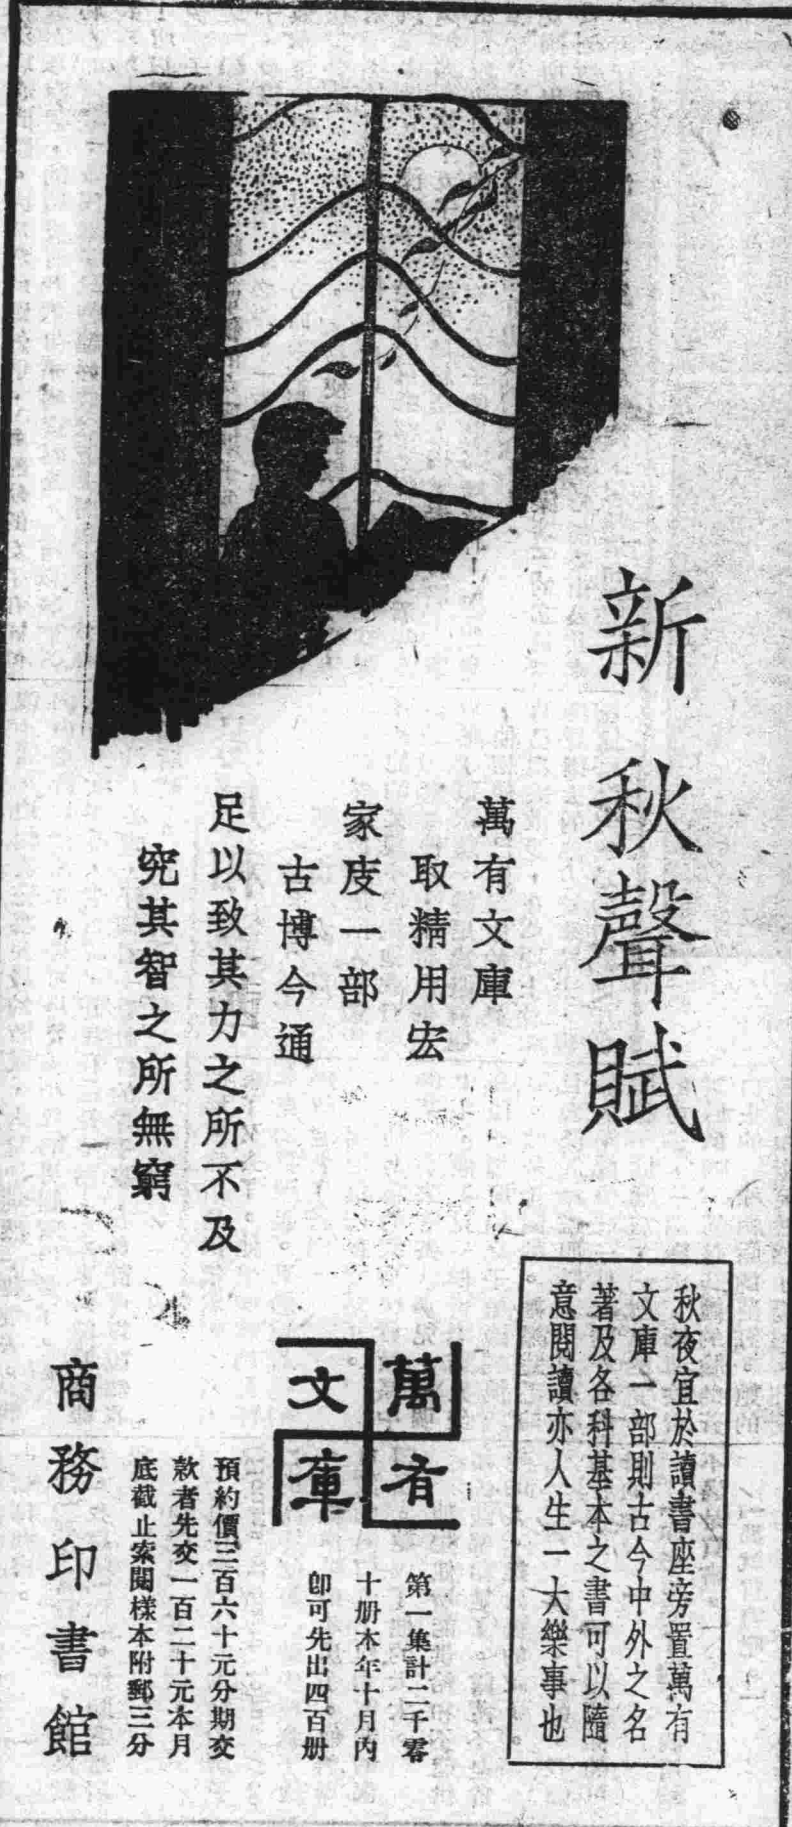 新秋聲賦
萬有文庫
取精用宏
家庋一部
古博今通
足以致其力之所不及
究其智之所無窮
秋夜宜於讀書座旁置萬有
文庫一部則古今中外之名
著及各科基本之書可以隨
意閱讀亦人生一大樂事也
萬有
文庫
第一集計二千零
十册本年十月內
卽可先出四百册
預約價三百六十元分期交
款者先交一百二十元本月
底截止索閱樣本附郵三分
商務印書館